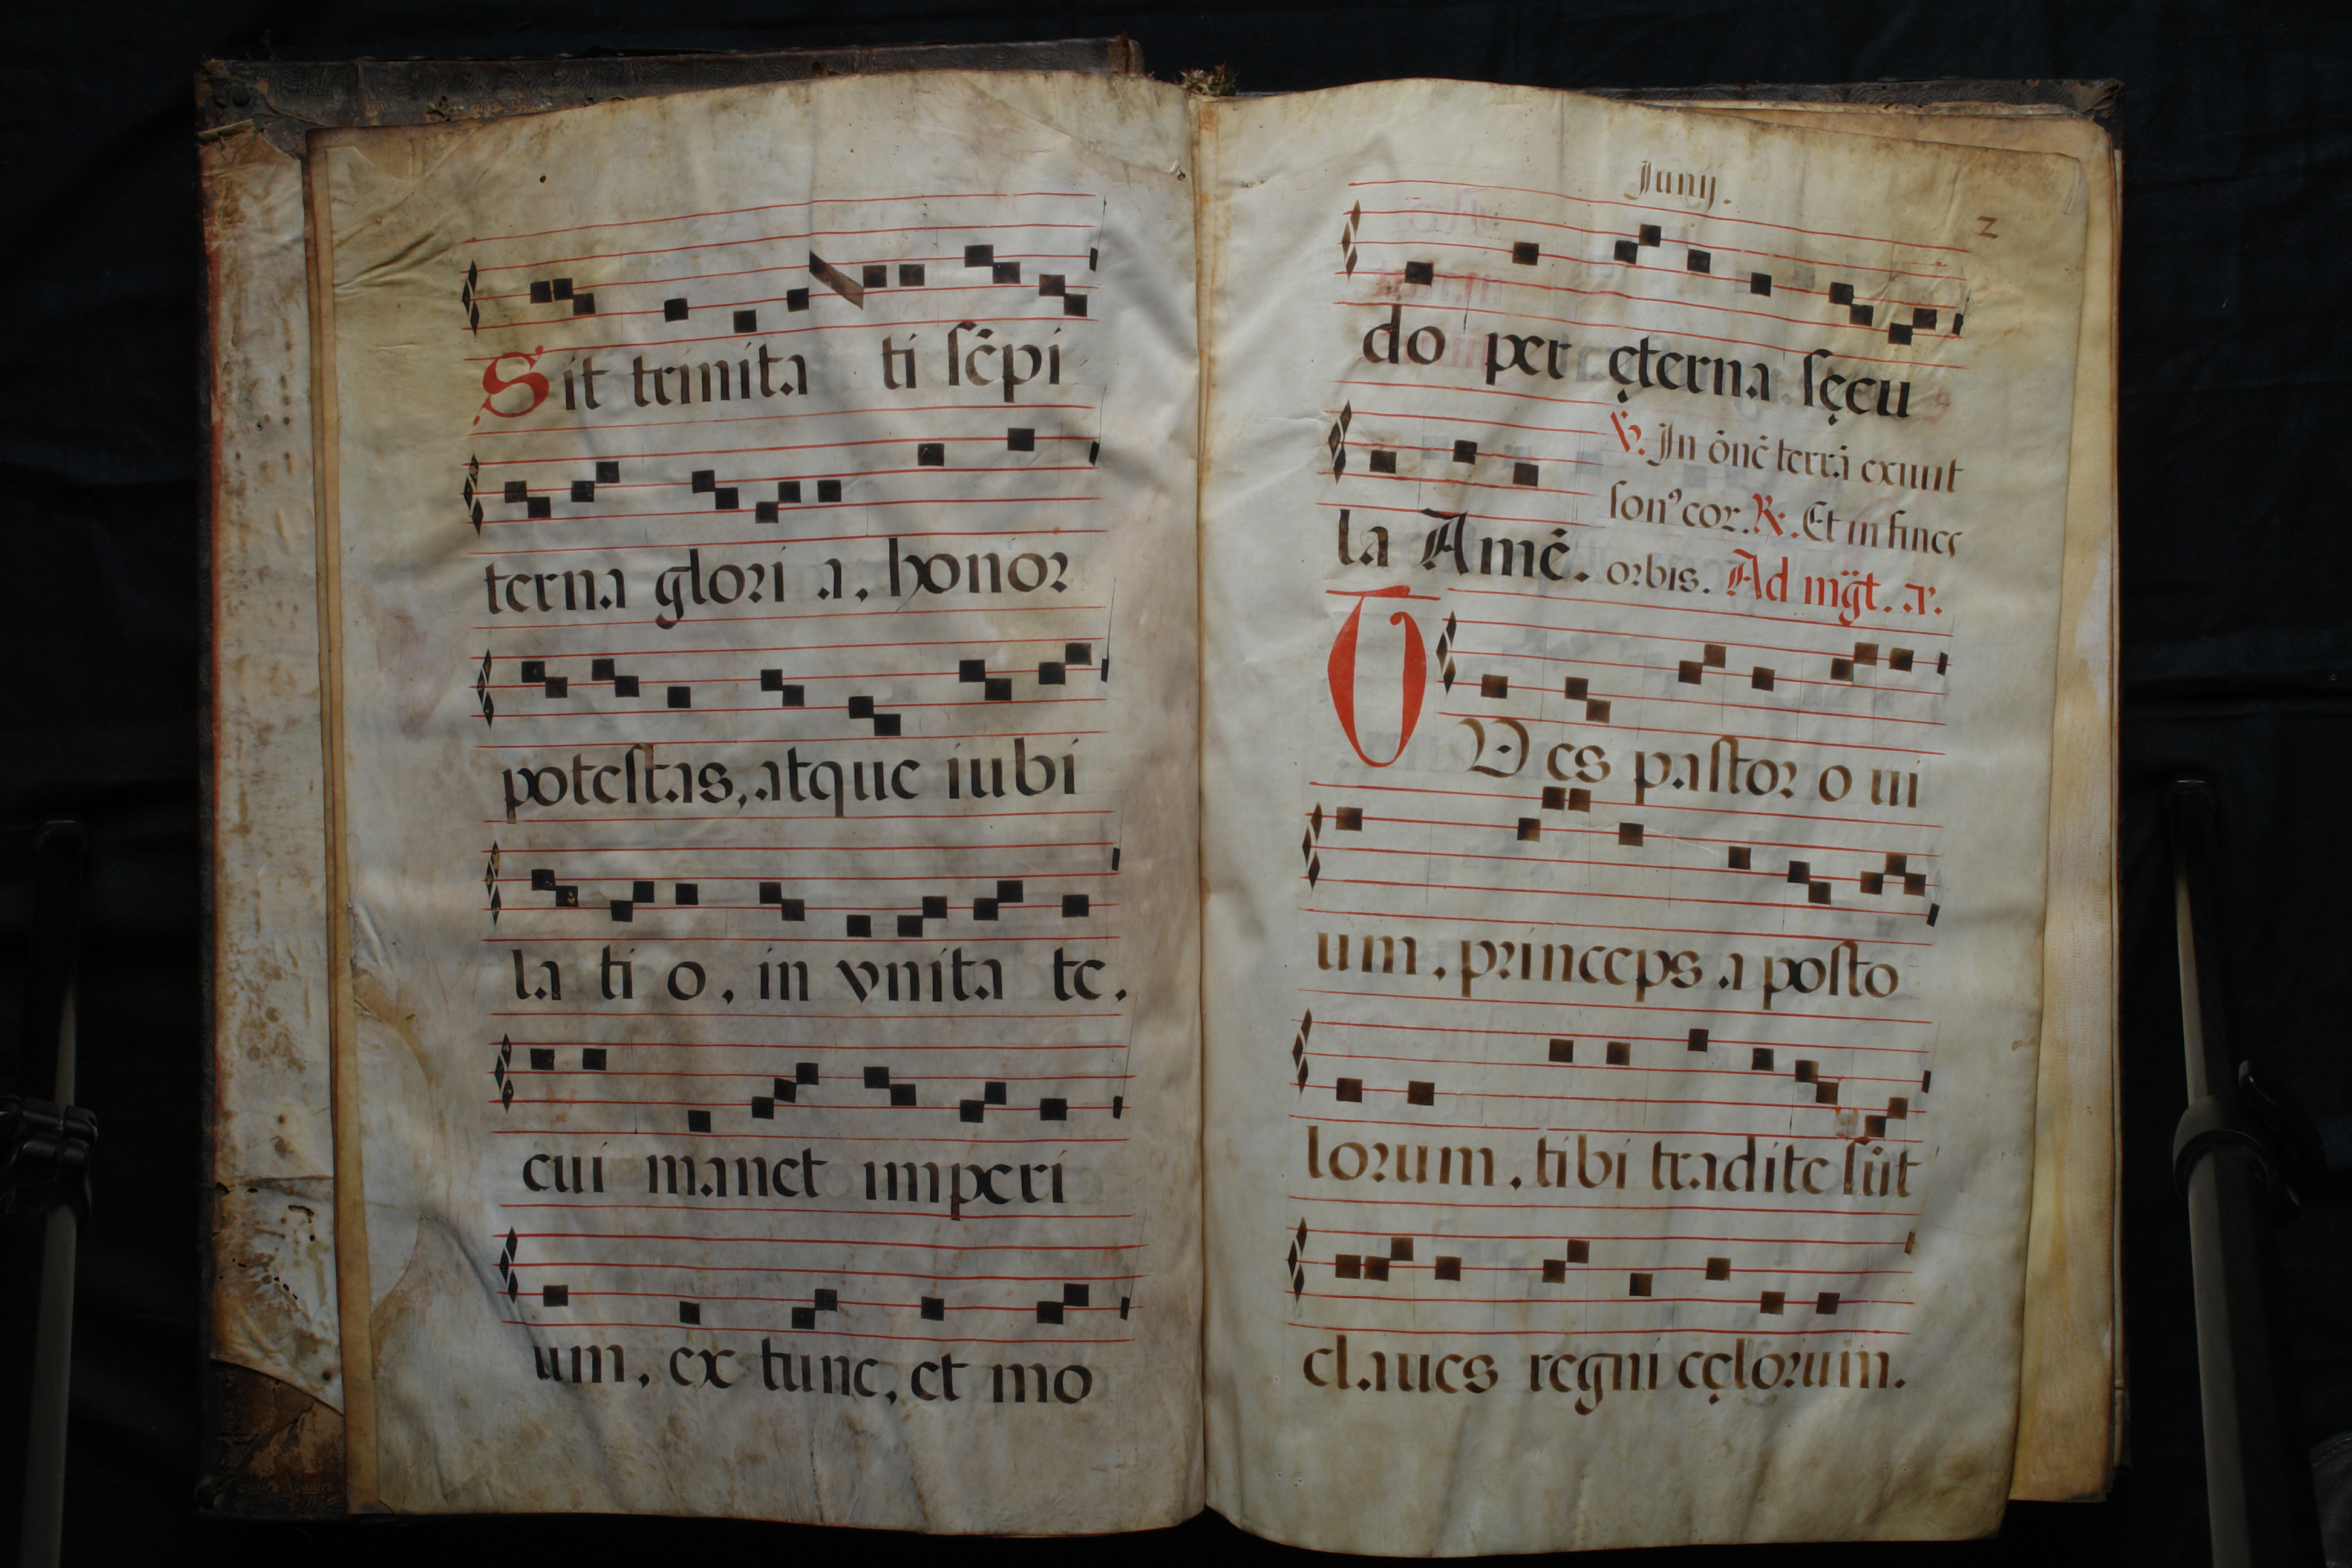 Sit trinita ti sēpi
terna glori a, honor
potestas, atque iubi
la ti o, in vnita te.
cui manet imperi
um, ex tunc, et mo
Junij.
2
do per ęterna sęcu
℣. In ōnē terrā exiuit
sonꝰ eor. ℟. Et in fines
la Amē. orbis. Ad mg̈t. a.
TV es pastor o ui
um, princeps a posto
lorum, tibi tradite sūt
claues regni cęlorum.